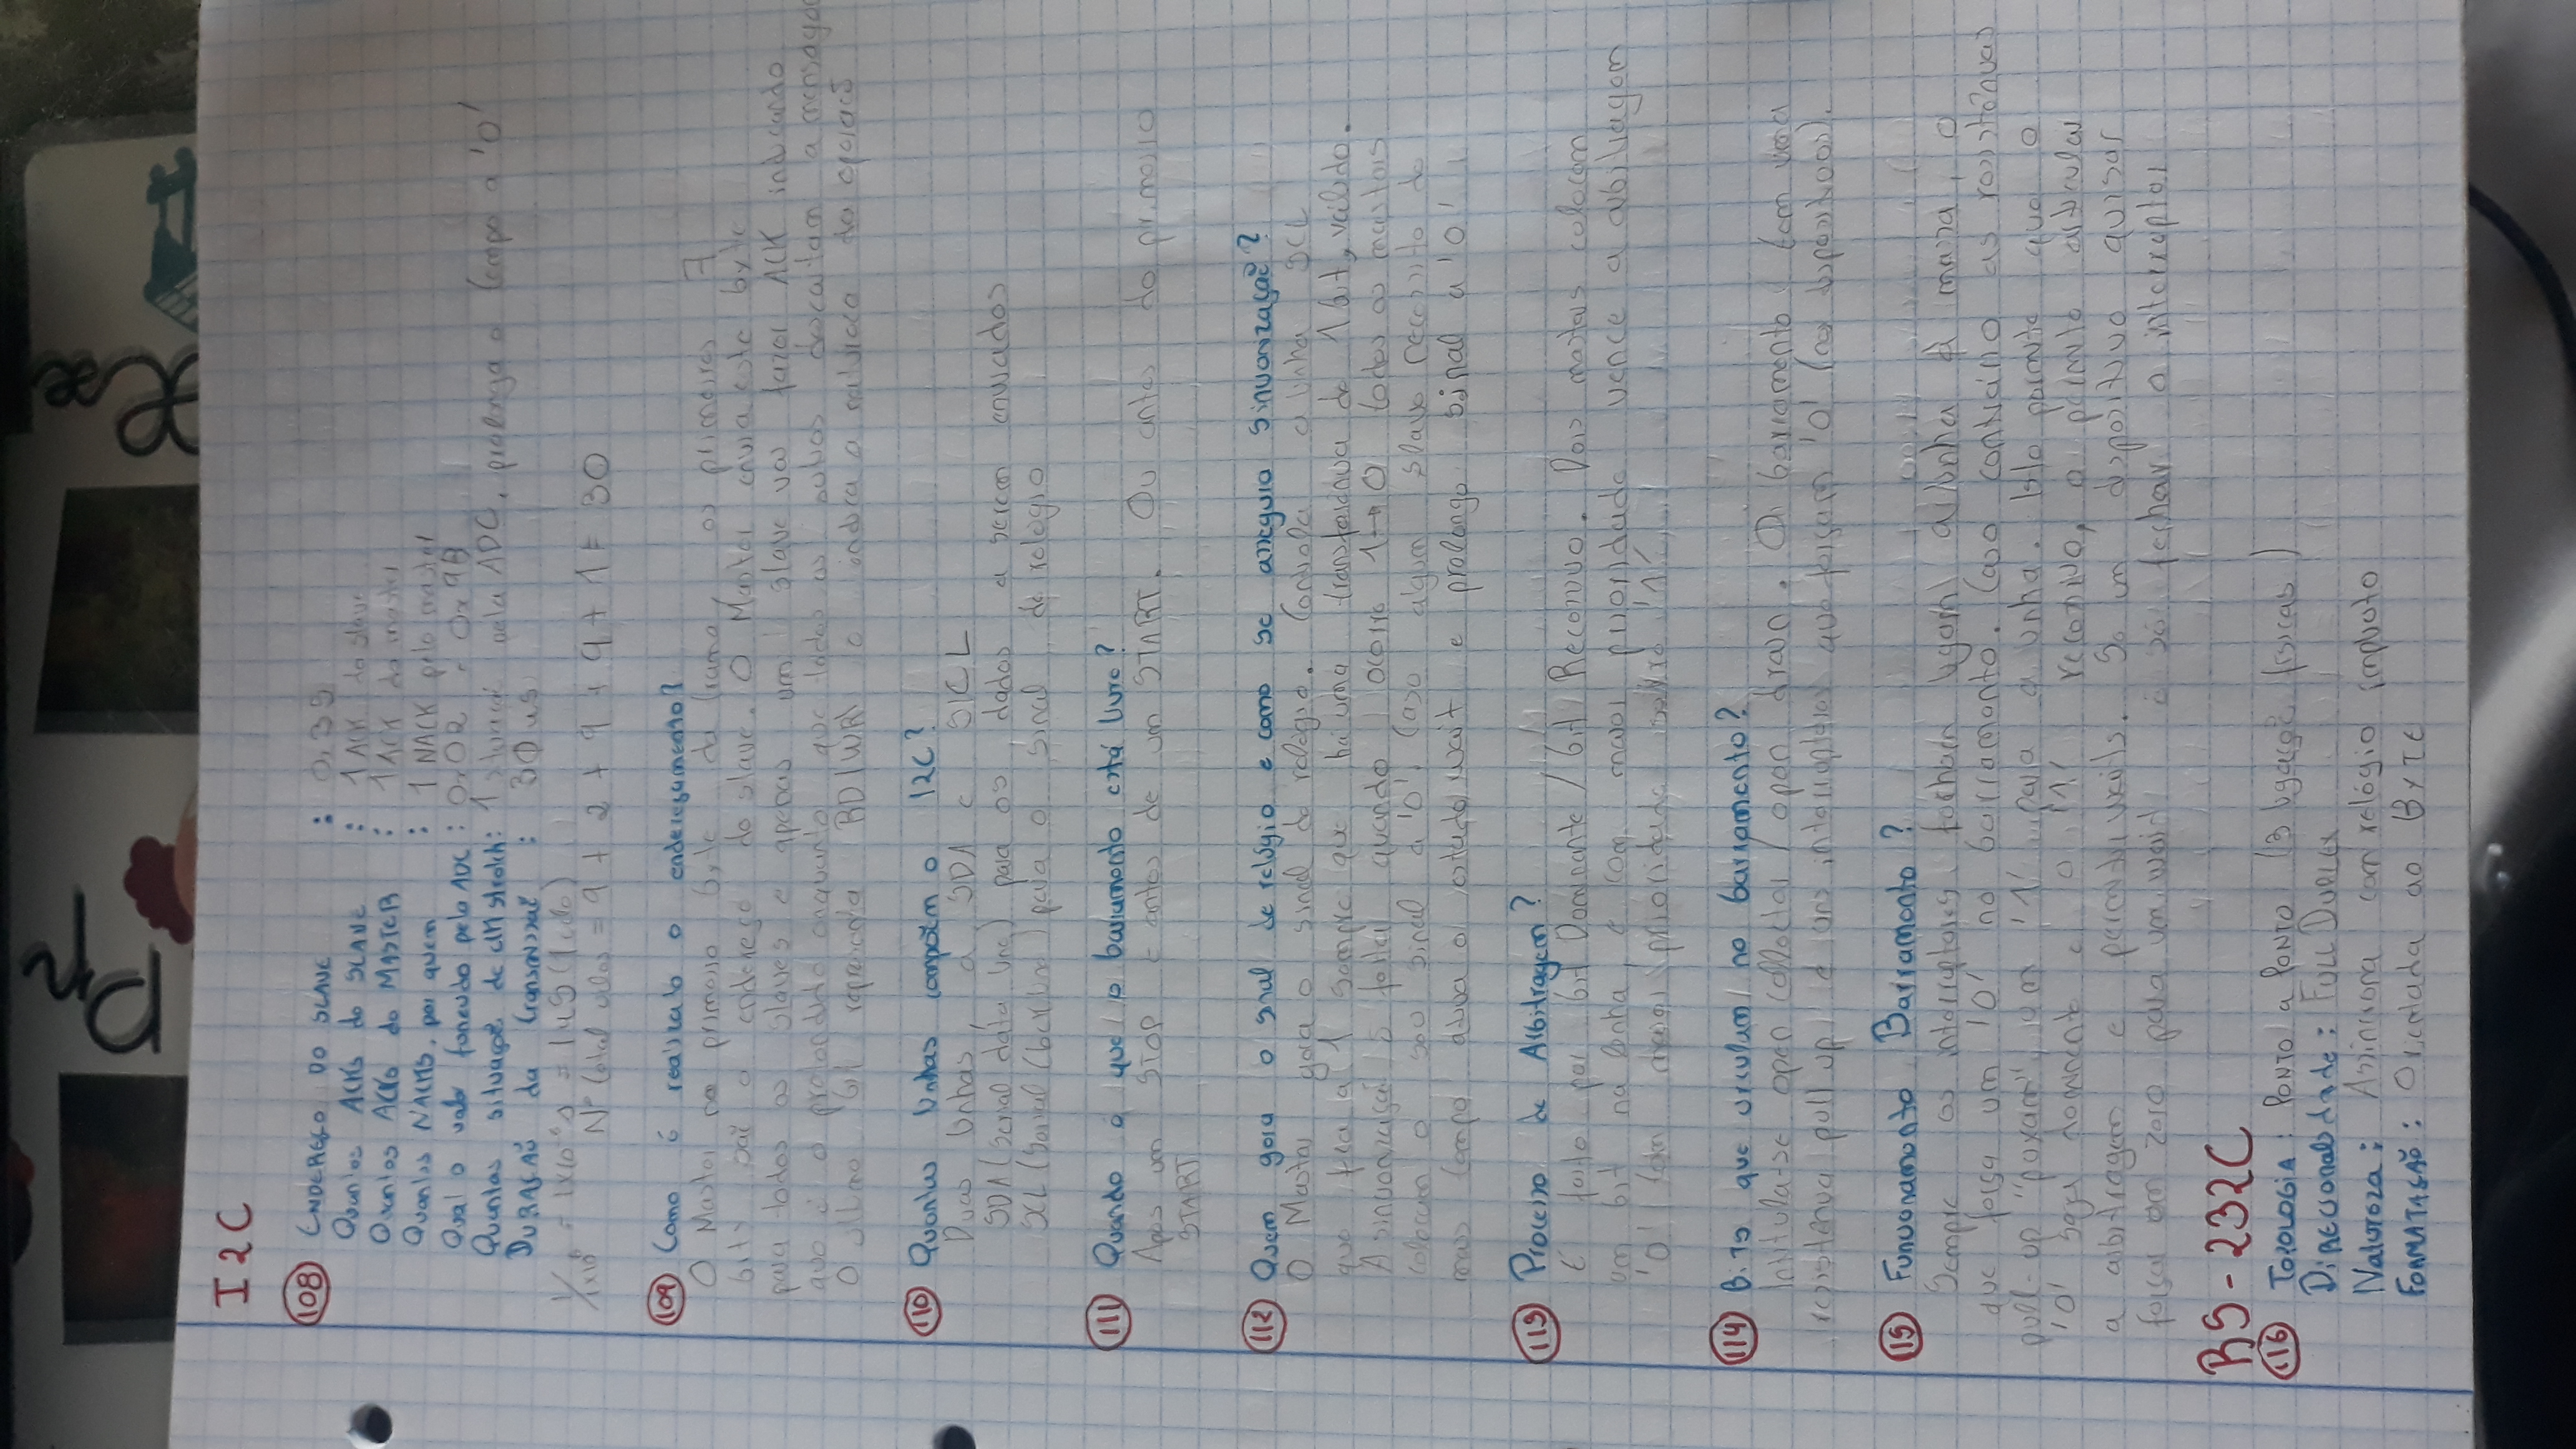 I2C
108 ENDEREÇO DO SLAVE : 0x35
Quantos ACKs do SLAVE : 1 ACK do slave
Quantos ACKs do MASTER : 1 ACK do master
Quantos NACKS, por quem : 1 NACK pelo master
Qual o valor fornecido pelo ADC : 0x02 0x9B
Quantas situaçoẽ de clk stretch: 1 pela ADC, prolonga o tempo a '0'
DURAÇAÕ da transmissaõ : 30 us
= 1 us (1 ciclo)
Nº total ciclos = 9 + 2 + 9 + 9 + 1 = 30
109 Como é realizado o endereçamento?
O Master no primeiro byte da trama, os primeiros 7
bits saõ o endereço do slave. O Master envia este byte
para todos os slaves e apenas um slave vai fazer ACK indicando
que é o pretendido enquanto que todos os outros descartam a mensagem
O ultimo bit representa RD/WR e indica a natureza da operaçaõ
110 Quantas linhas compoẽm o I2C?
Duas linhas, a SDA e SCL
SDA (serial data line) para os dados a serem enviados
SCL (serial clock line) para o sinal de relogio
111 Quando é que o barramento está livre?
Apos um STOP e antes de um START. Ou antes do primeiro
START
112 Quem gera o sinal de relógio e como se assegura sincronizaçaõ?
O Master gera o sinal de relogio. Controla a linha SCL
que fica a 1 sempre que ha uma transferência de 1 bit, valido.
A sincronizaçaõ é feita quando ocorre 1→0 todos os masters
colocam o seu sinal a '0'. Caso algum slave necessite de
mais tempo ativa o estado wait e prolonga sinal a '0'
113 Processo de Arbitragem?
É feito por bit Dominante / bit Recessivo. Dois masters colocam
um bit na linha, o com maior prioridade vence a arbitragem
'0' tem maior prioridade sobre '1'
114 Bits que circulam no barramento?
Intitula-se open collector / open drain. O barramento tem uma
resistencia pull up e uns interruptores que forçam '0' (nos dispositivos).
115 Funcionamento Barramento?
Sempre os interruptores fecham ligam a linha à massa, o
que força um '0' no barramento. Caso contrário as resistências
pull-up "puxam" um '1' para a linha. Isto permite que o
'0' seja dominante e o '1' recessivo, e permite articular
a arbitragem e permitir waits. Se um dispositivo quiser
forçar um zero para um wait é só fechar o interruptor
RS-232C
116 TOPOLOGIA: PONTO a PONTO (3 ligaçoẽ fisicas)
Direcionalidade: FULL DUPLEX
Natureza: Assincrona com relógio implicito
FORMATAÇAÕ: Orientada ao BYTE